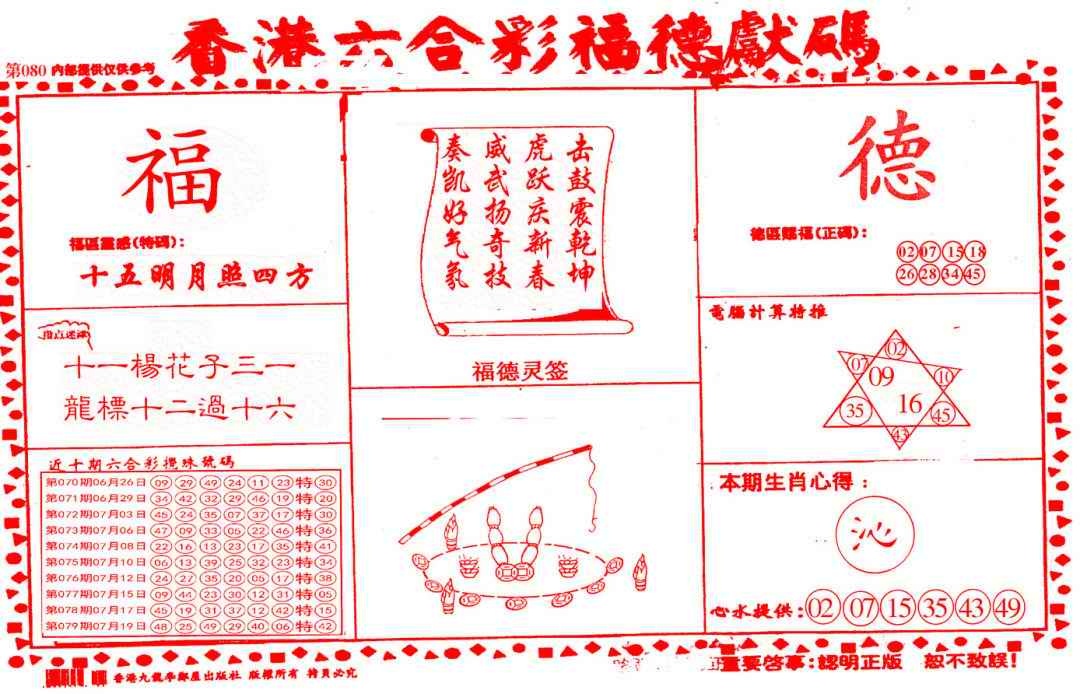 香港六合彩福德獻碼
第080 内部提供仅供参考
福
福區靈感(特碼):
十五明月照四方
十一楊花子三一
龍標十二過十六
近十期六合彩攪珠號碼
第070期06月26日 09 29 49 24 11 23 特 30
第071期06月29日 34 42 32 29 46 19 特 20
第072期07月03日 45 24 35 07 37 17 特 30
第073期07月06日 47 09 33 05 22 46 特 36
第074期07月08日 22 16 13 23 17 35 特 41
第075期07月10日 06 13 39 25 32 23 特 34
第076期07月12日 24 27 35 20 05 17 特 38
第077期07月15日 09 44 23 30 12 31 特 05
第078期07月17日 45 19 31 37 12 42 特 15
第079期07月19日 48 25 49 29 40 06 特 42
击鼓震乾坤
虎跃庆新春
威武扬奇技
奏凯好气氛
福德灵签
德
德區賜福(正碼):
02 07 15 18
26 28 34 45
電腦計算特推
02
07 09 10
35 16 45
43
本期生肖心得:
沁
心水提供: 02 07 15 35 43 49
香港九龍 出版社 版權所有 必究
重要啓事:認明正版 恕不致誤!